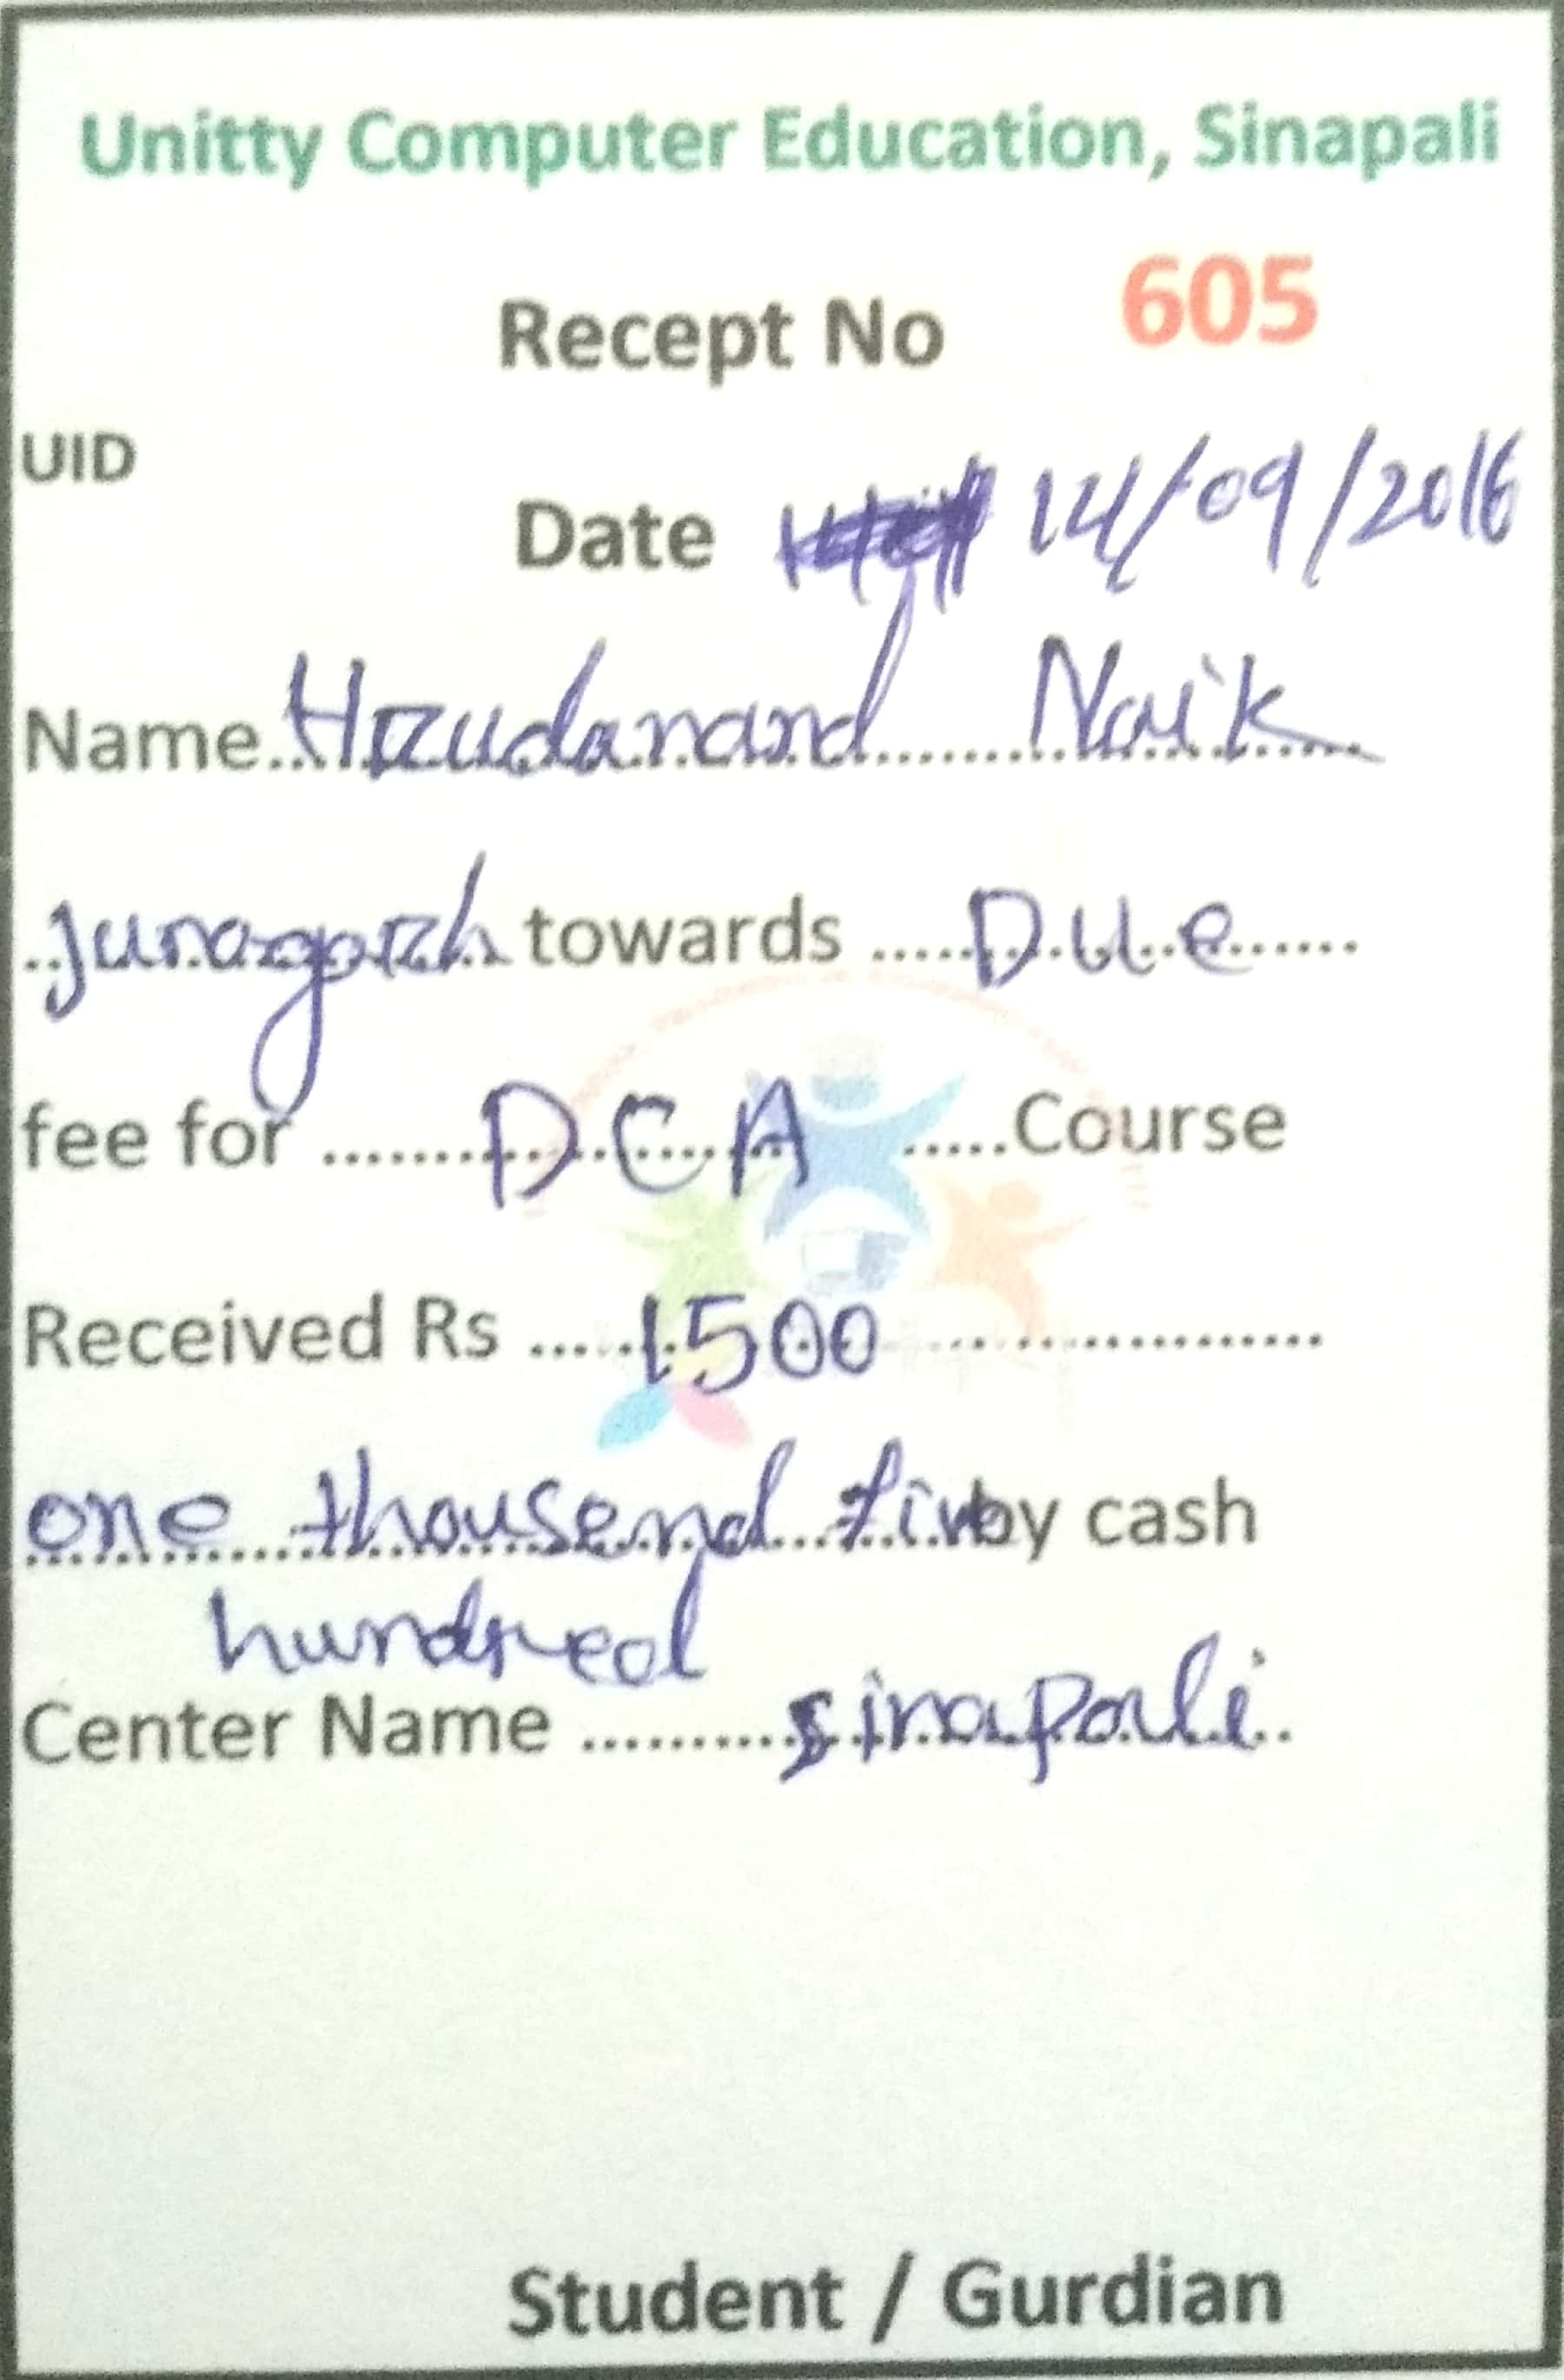 Unitty Computer Education, Sinapali
Recept No 605
UID
Date 14/09/2016
Name Hrudanand Naik
Junagarh towards Due
fee for DCA Course
Received Rs 1500
one thousend five by cash
hundred
Center Name Sinapali
Student / Gurdian